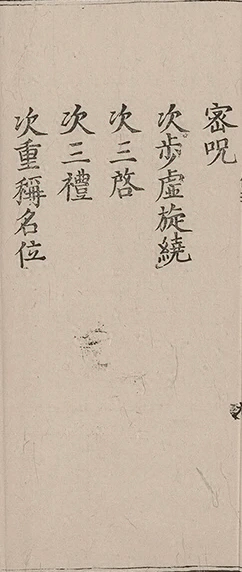 密呪
次步虛旋繞
次三啓
次三禮
次重稱名位